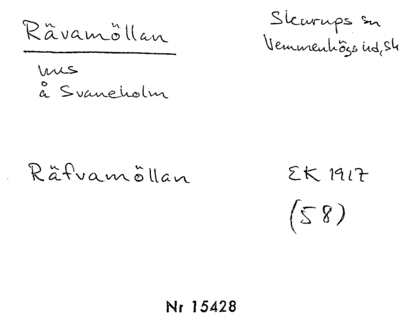 Rävamöllan
Skurups sn
Vemmenhögs hd, Sk
hus
å Svaneholm
Räfvamöllan
EK 1917
(58)
Nr 15428